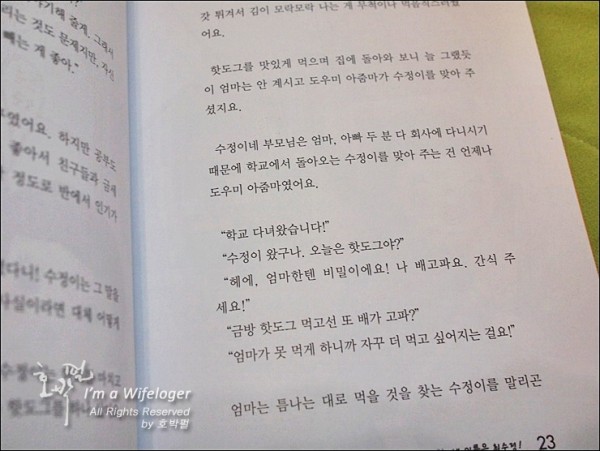 기해 줄게. 그래서
리는 것도 문제지만, 자신
빼는 게 좋아."
였어요. 하지만 공부도
좋아서 친구들과 금세
정도로 반에서 인기가
다니! 수정이는 그 말을
사실이라면 대체 어떻게
수정
핫도그를
갓 튀겨서 김이 모락모락 나는 게 무척이나 먹음직스러웠
어요.
핫도그를 맛있게 먹으며 집에 돌아와 보니 늘 그랬듯
이 엄마는 안 계시고 도우미 아줌마가 수정이를 맞아 주
셨지요.
수정이네 부모님은 엄마, 아빠 두 분 다 회사에 다니시기
때문에 학교에서 돌아오는 수정이를 맞아 주는 건 언제나
도우미 아줌마였어요.
"학교 다녀왔습니다!"
"수정이 왔구나. 오늘은 핫도그야?"
"헤에, 엄마한텐 비밀이에요! 나 배고파요. 간식 주
세요!"
"금방 핫도그 먹고선 또 배가 고파?"
"엄마가 못 먹게 하니까 자꾸 더 먹고 싶어지는 걸요!"
엄마는 틈나는 대로 먹을 것을 찾는 수정이를 말리곤
최수정! 23
호박펌
I'm a Wifeloger
All Rights Reserved
by 호박펌